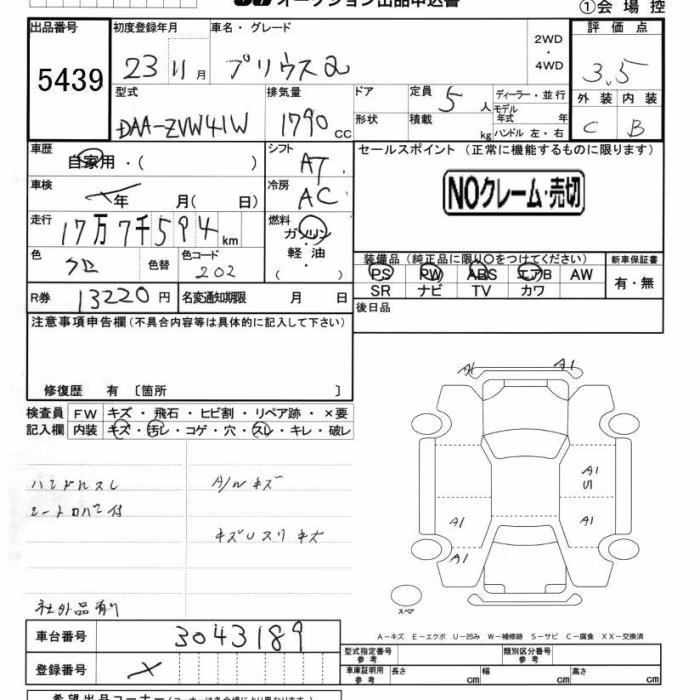 オークション出品申込書
①会場控
出品番号 初度登録年月 車名・グレード 2WD・4WD 評価点
5439 23 11月 プリウスα 3.5
型式 排気量 ドア 定員 5人 ディーラー・並行 外装 内装
モデル年式 年
DAA-ZVW41W 1790cc 形状 積載 kg ハンドル 左・右 C B
車歴 自家用・( ) シフト AT セールスポイント (正常に機能するものに限ります)
車検 年 月( 日) 冷房 AC NOクレーム・売切
走行 17万7千594km 燃料 ガソリン・軽油・( )
色 クロ 色替 色コード 202 装備品 (純正品に限り○をつけてください) 新車保証書
PS PW ABS エアB AW 有・無
SR ナビ TV カワ
R券 13220円 名変通知期限 月 日 後日品
注意事項申告欄 (不具合内容等は具体的に記入して下さい)
修復歴 有 〔箇所 〕
検査員 FW キズ・飛石・ヒビ割・リペア跡・×要
記入欄 内装 キズ・汚レ・コゲ・穴・スレ・キレ・破レ
A1 A1
ハンドルスレ A/Wキズ A1
シートロハマ付 U1
キズUスリキズ A1 A1
A1
社外品有り スペア
車台番号 3043189
A-キズ E-エクボ U-凹み W-補修跡 S-サビ C-腐食 XX-交換済
登録番号 型式指定番号 参考 類別区分番号 参考
車庫証明用 参考 長さ cm 幅 cm 高さ cm
希望出品コーナー